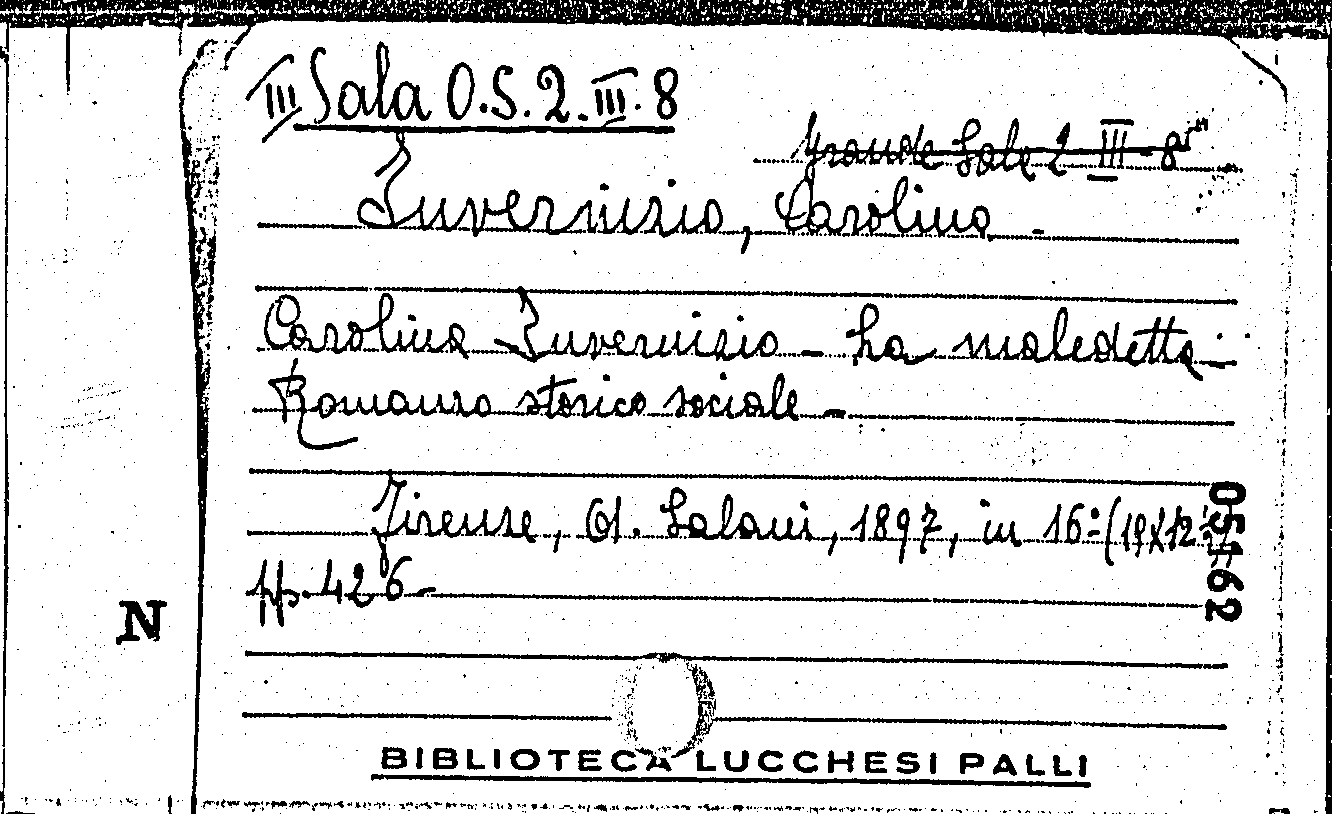 III Sala O.S. 2. III. 8
Grande Sala 2 III - 8
Invernizio, Carolina -
Carolina Invernizio - La maledetta -
Romanzo storico sociale -
Firenze, A. Salani, 1897, in 16º (19X12
pp. 426 -
05162
N
BIBLIOTECA LUCCHESI PALLI